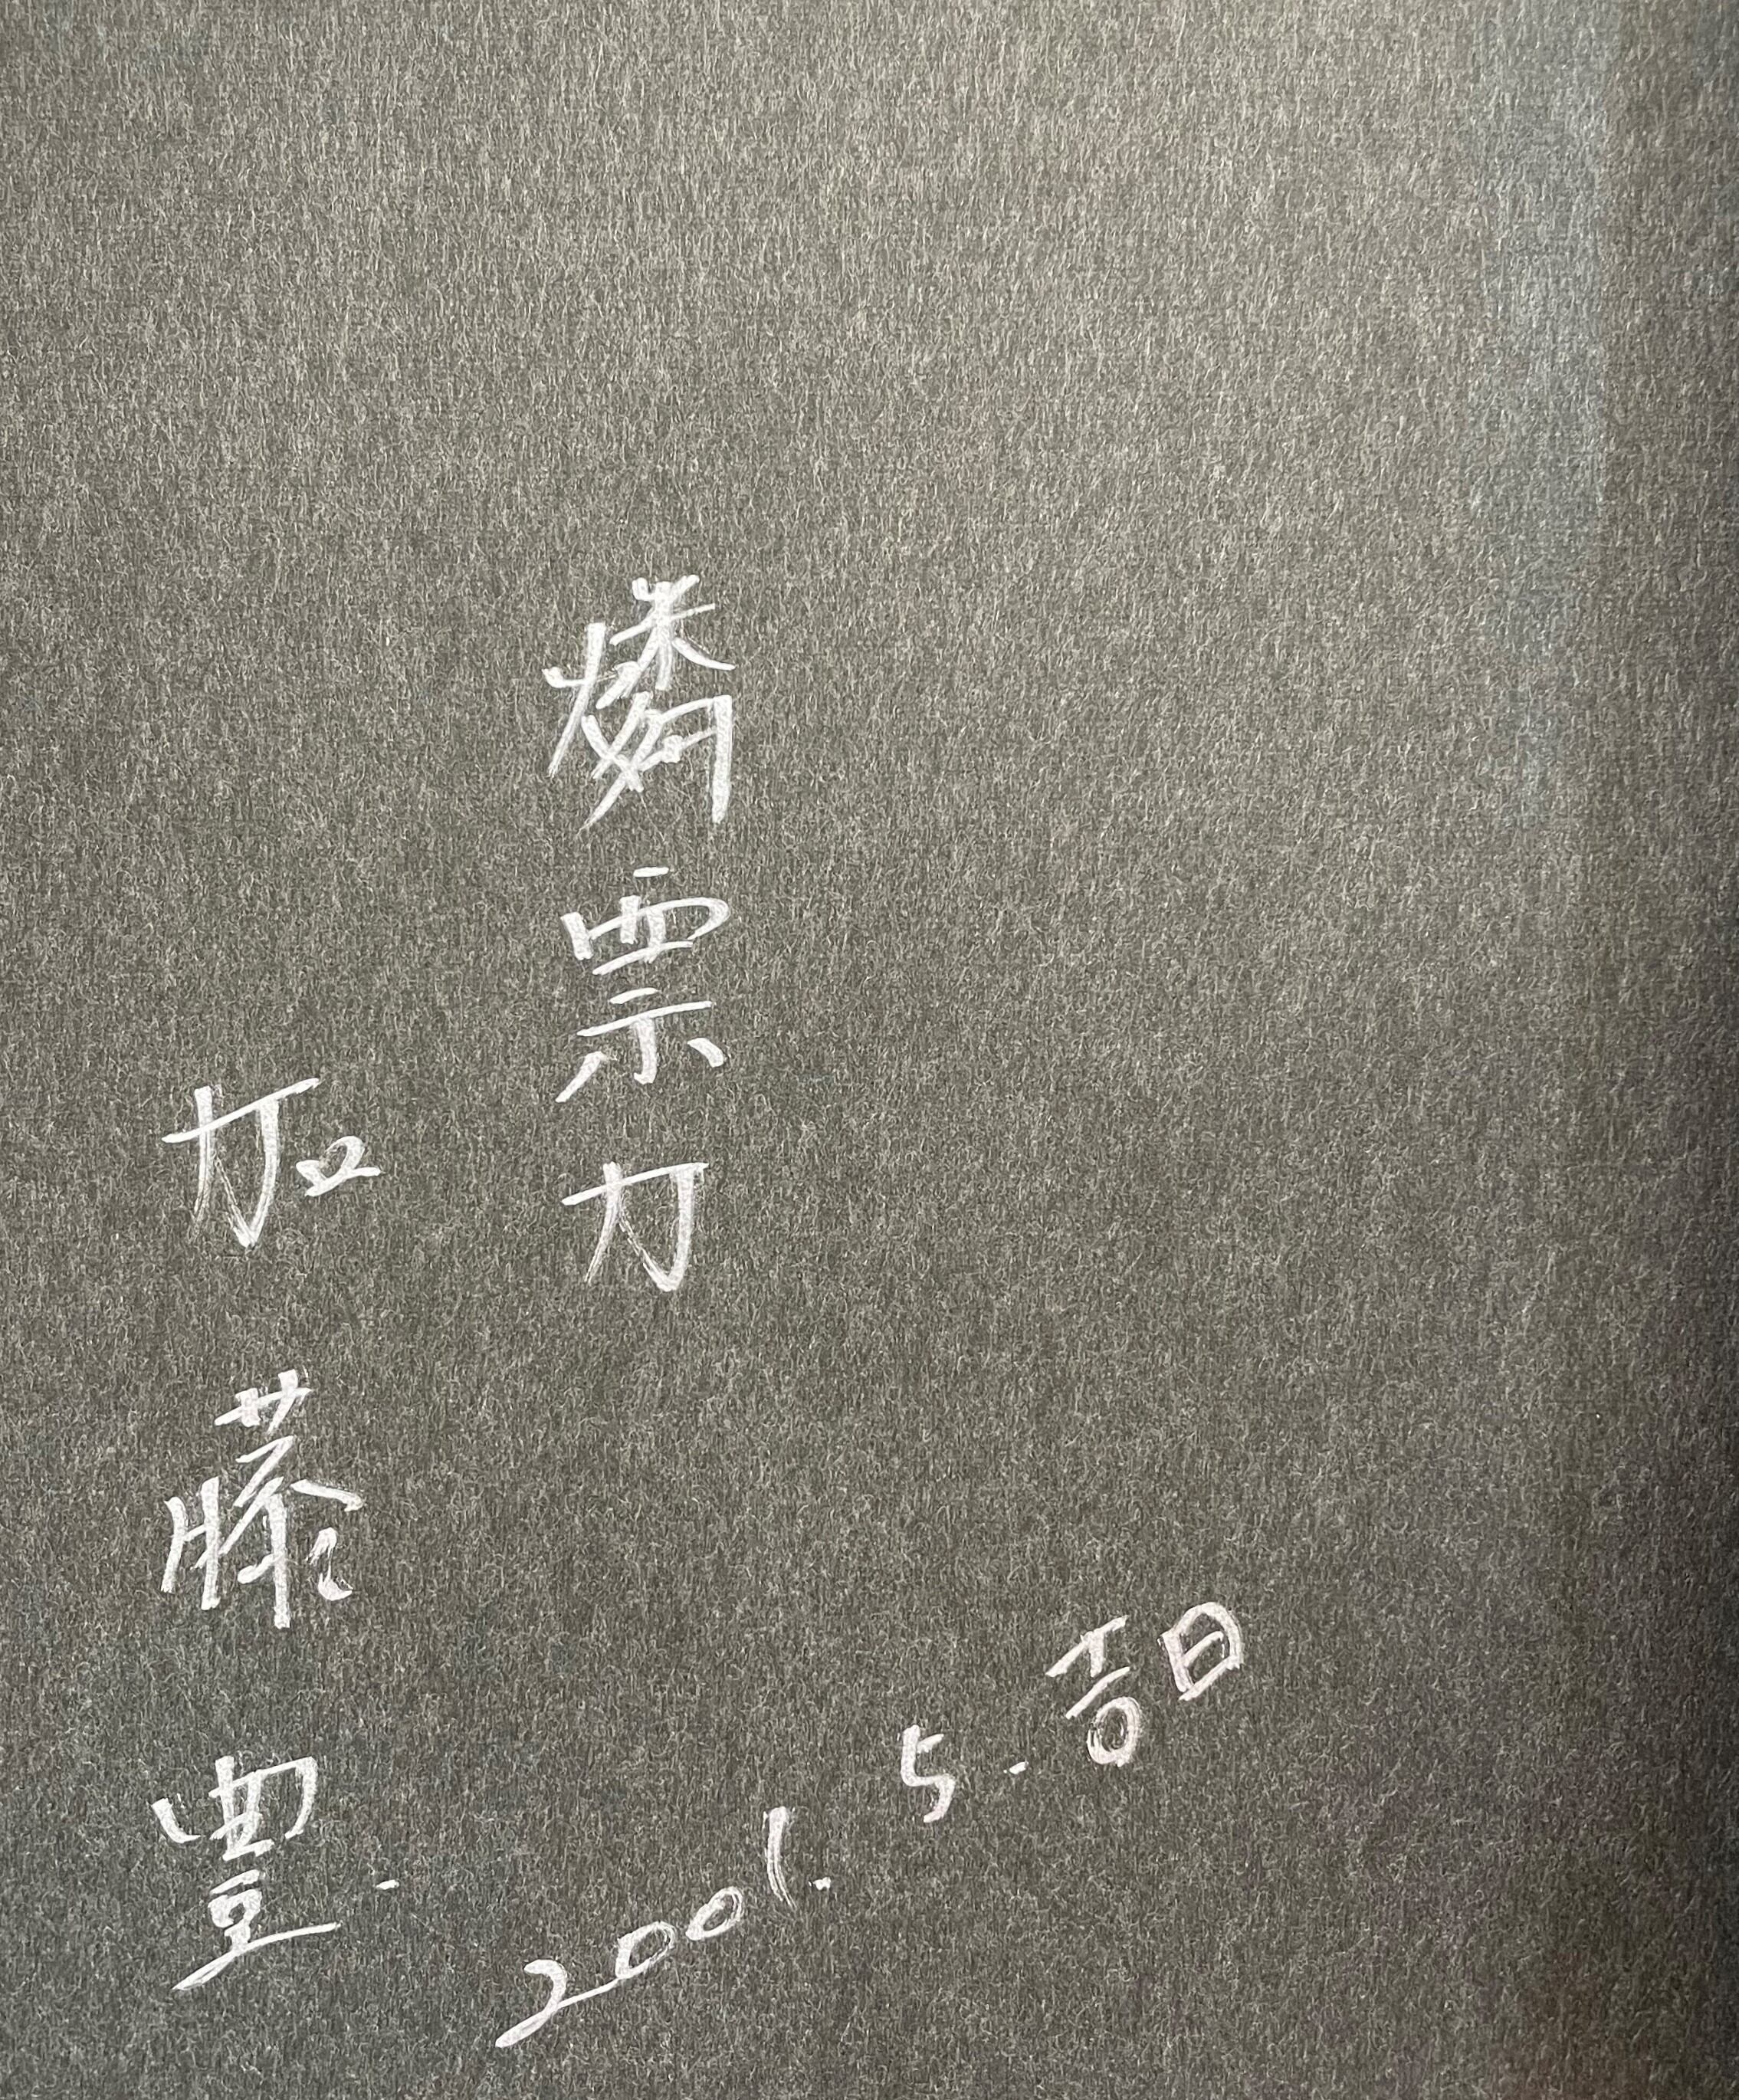 燐票力
加藤豊.
2001. 5. 吉日